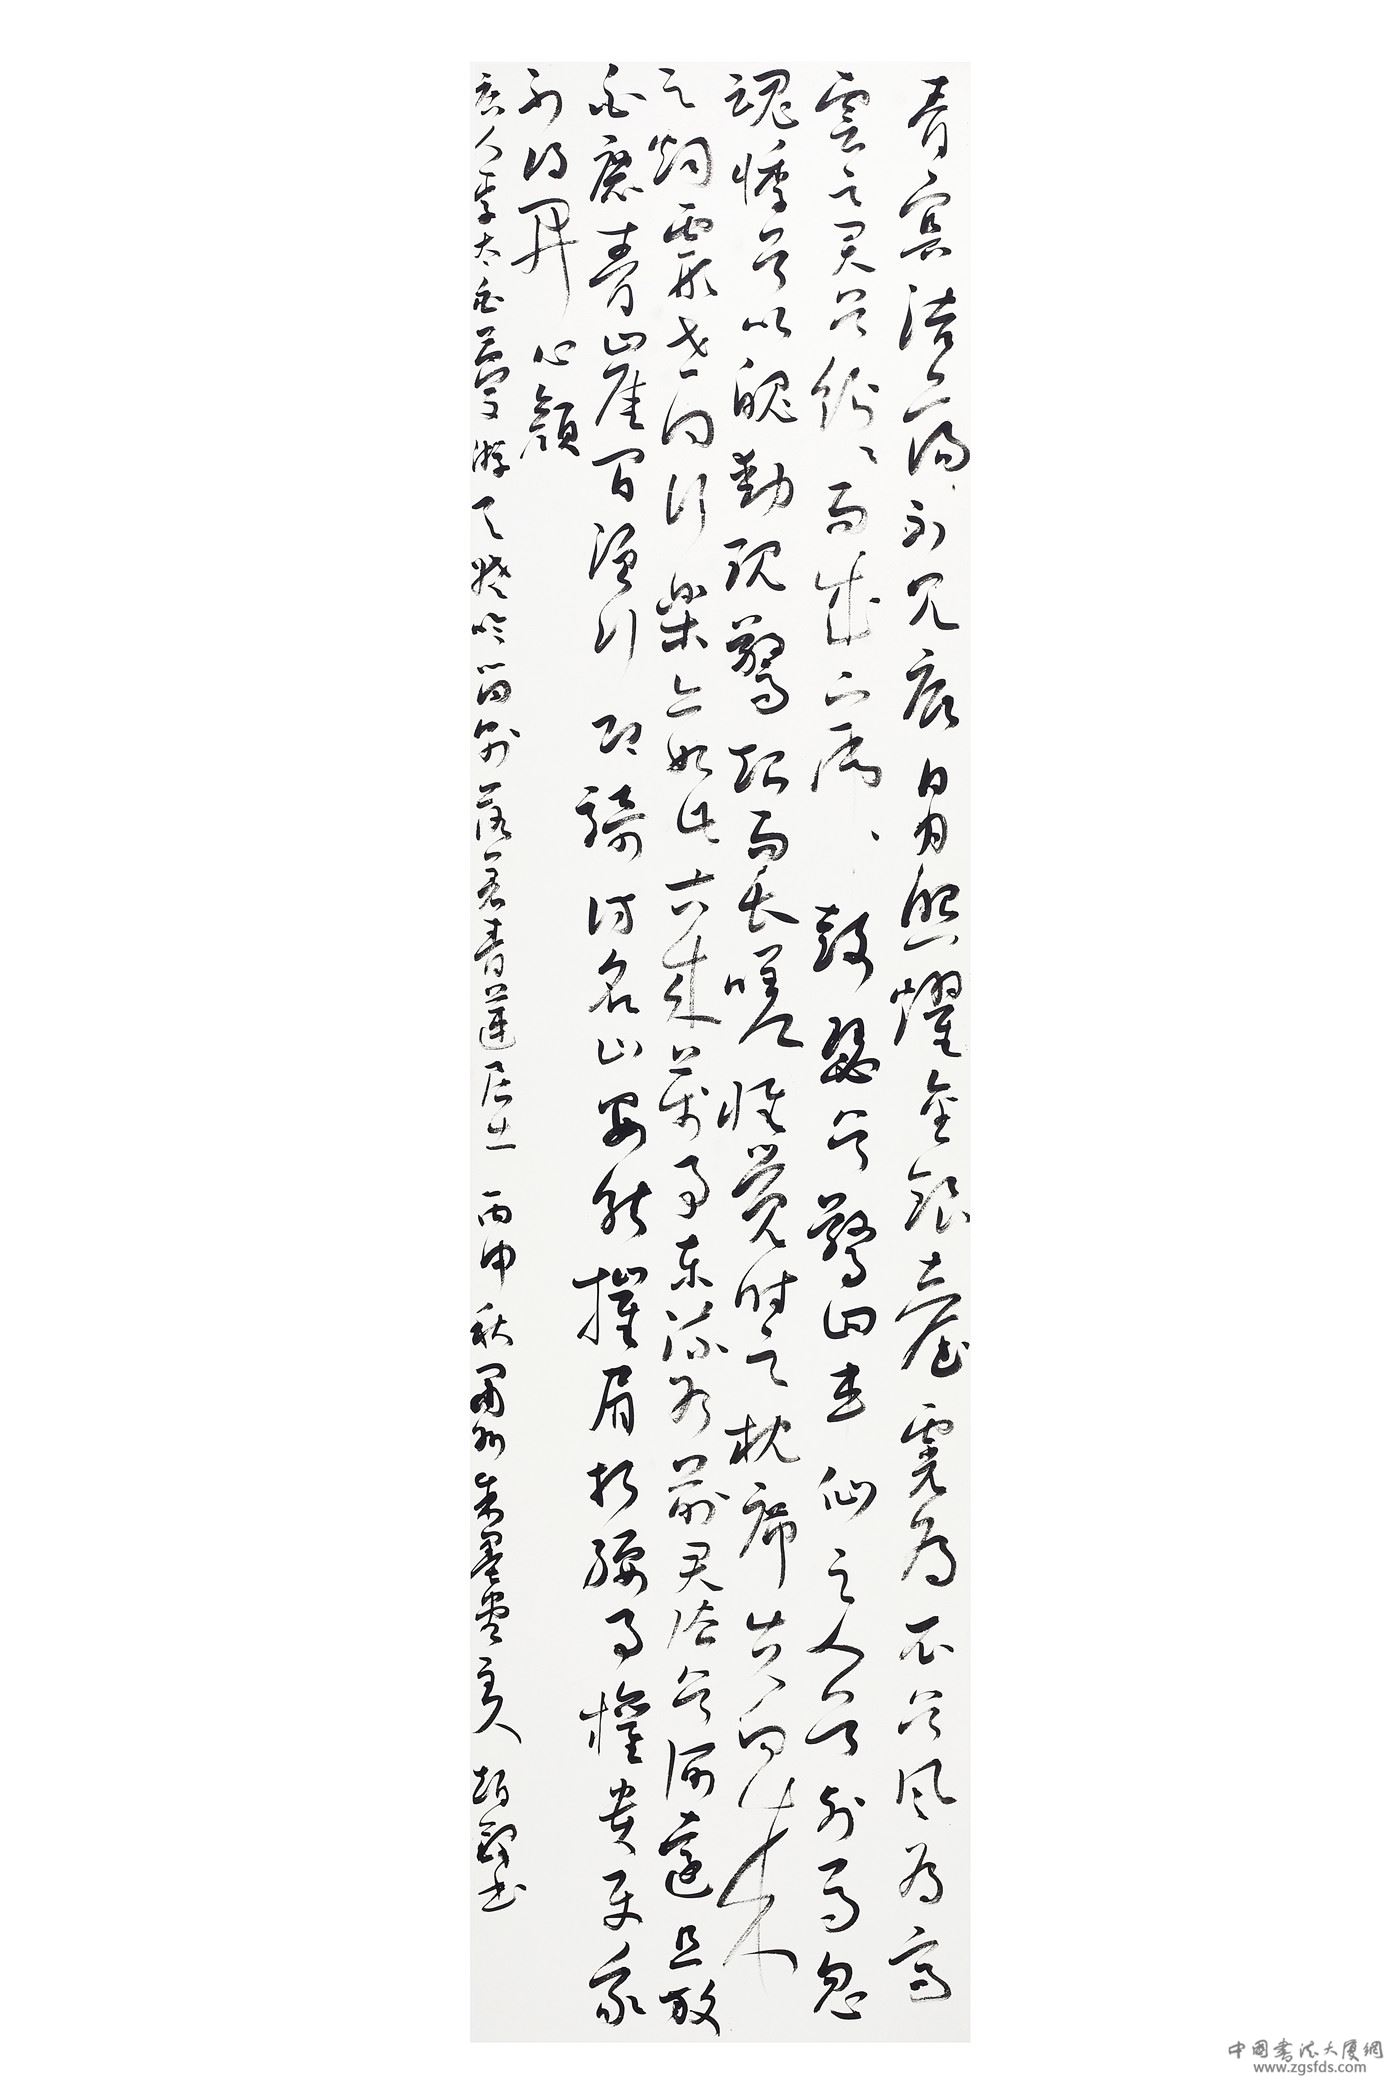 青冥浩蕩不見底日月照耀金銀臺霓為衣兮風為馬
雲之君兮紛紛而來下虎鼓瑟兮鸞回車仙之人兮列如麻忽
魂悸兮以魄動恍驚起而長嗟惟覺時之枕席失向來
之煙霞世間行樂亦如此古來萬事東流水別君去兮何還且放
白鹿青崖間須行即騎訪名山安能摧眉折腰事權貴使我
不得開心顏
唐人李太白夢游天姥吟留別落名青蓮居士 丙申秋 墨 書
中国書法大廈網
www.zgsfds.com